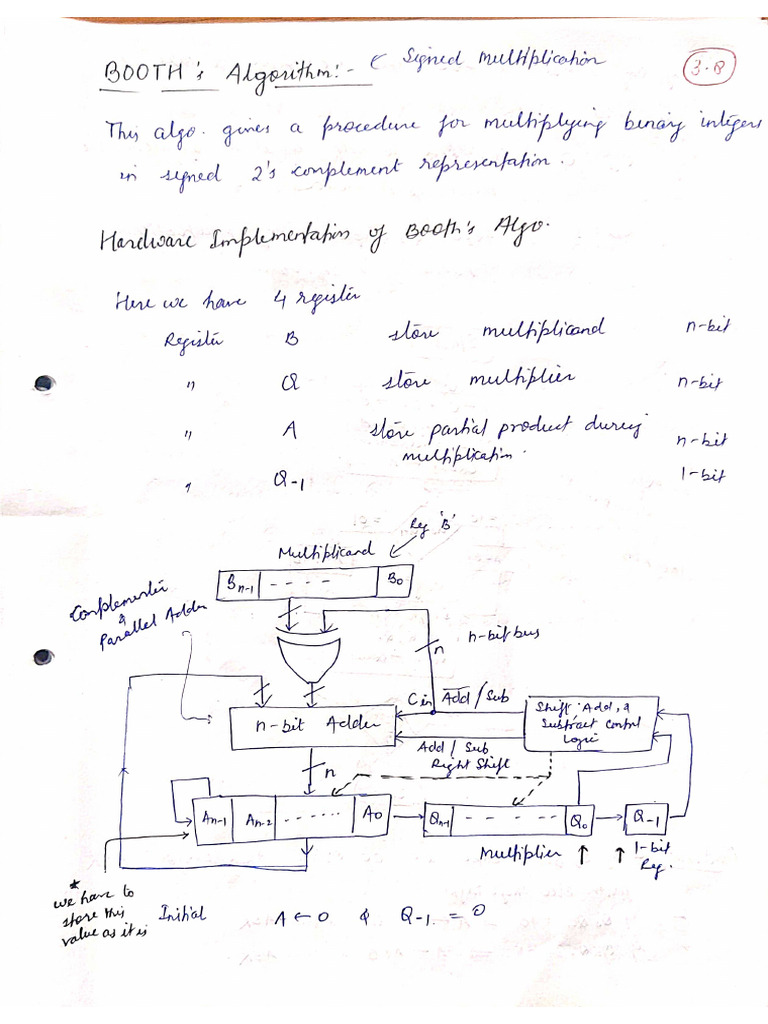 BOOTH's Algorithm:- ← Signed Multiplication
3.8
This algo. gives a procedure for multiplying binary integers
in signed 2's complement representation.
Hardware Implementation of Booth's Algo.
Here we have 4 register
Register B store multiplicand n-bit
" Q store multiplier n-bit
" A store partial product during n-bit
multiplication.
" Q-1 1-bit
Reg 'B'
Multiplicand
Bn-1 ----- B0
Complementer
&
Parallel Adder
n-bit bus
n
Cin Add/Sub
n-bit Adder
Shift, Add, &
Subtract Control
Logic
Add / Sub
Right Shift
n
An-1 An-2 ------ A0
Qn-1 - - - - - Q0
Q-1
Multiplier ↑ ↑ 1-bit
Reg.
*
we have to
store this
value as it is
Initial A ← 0 & Q-1 = 0